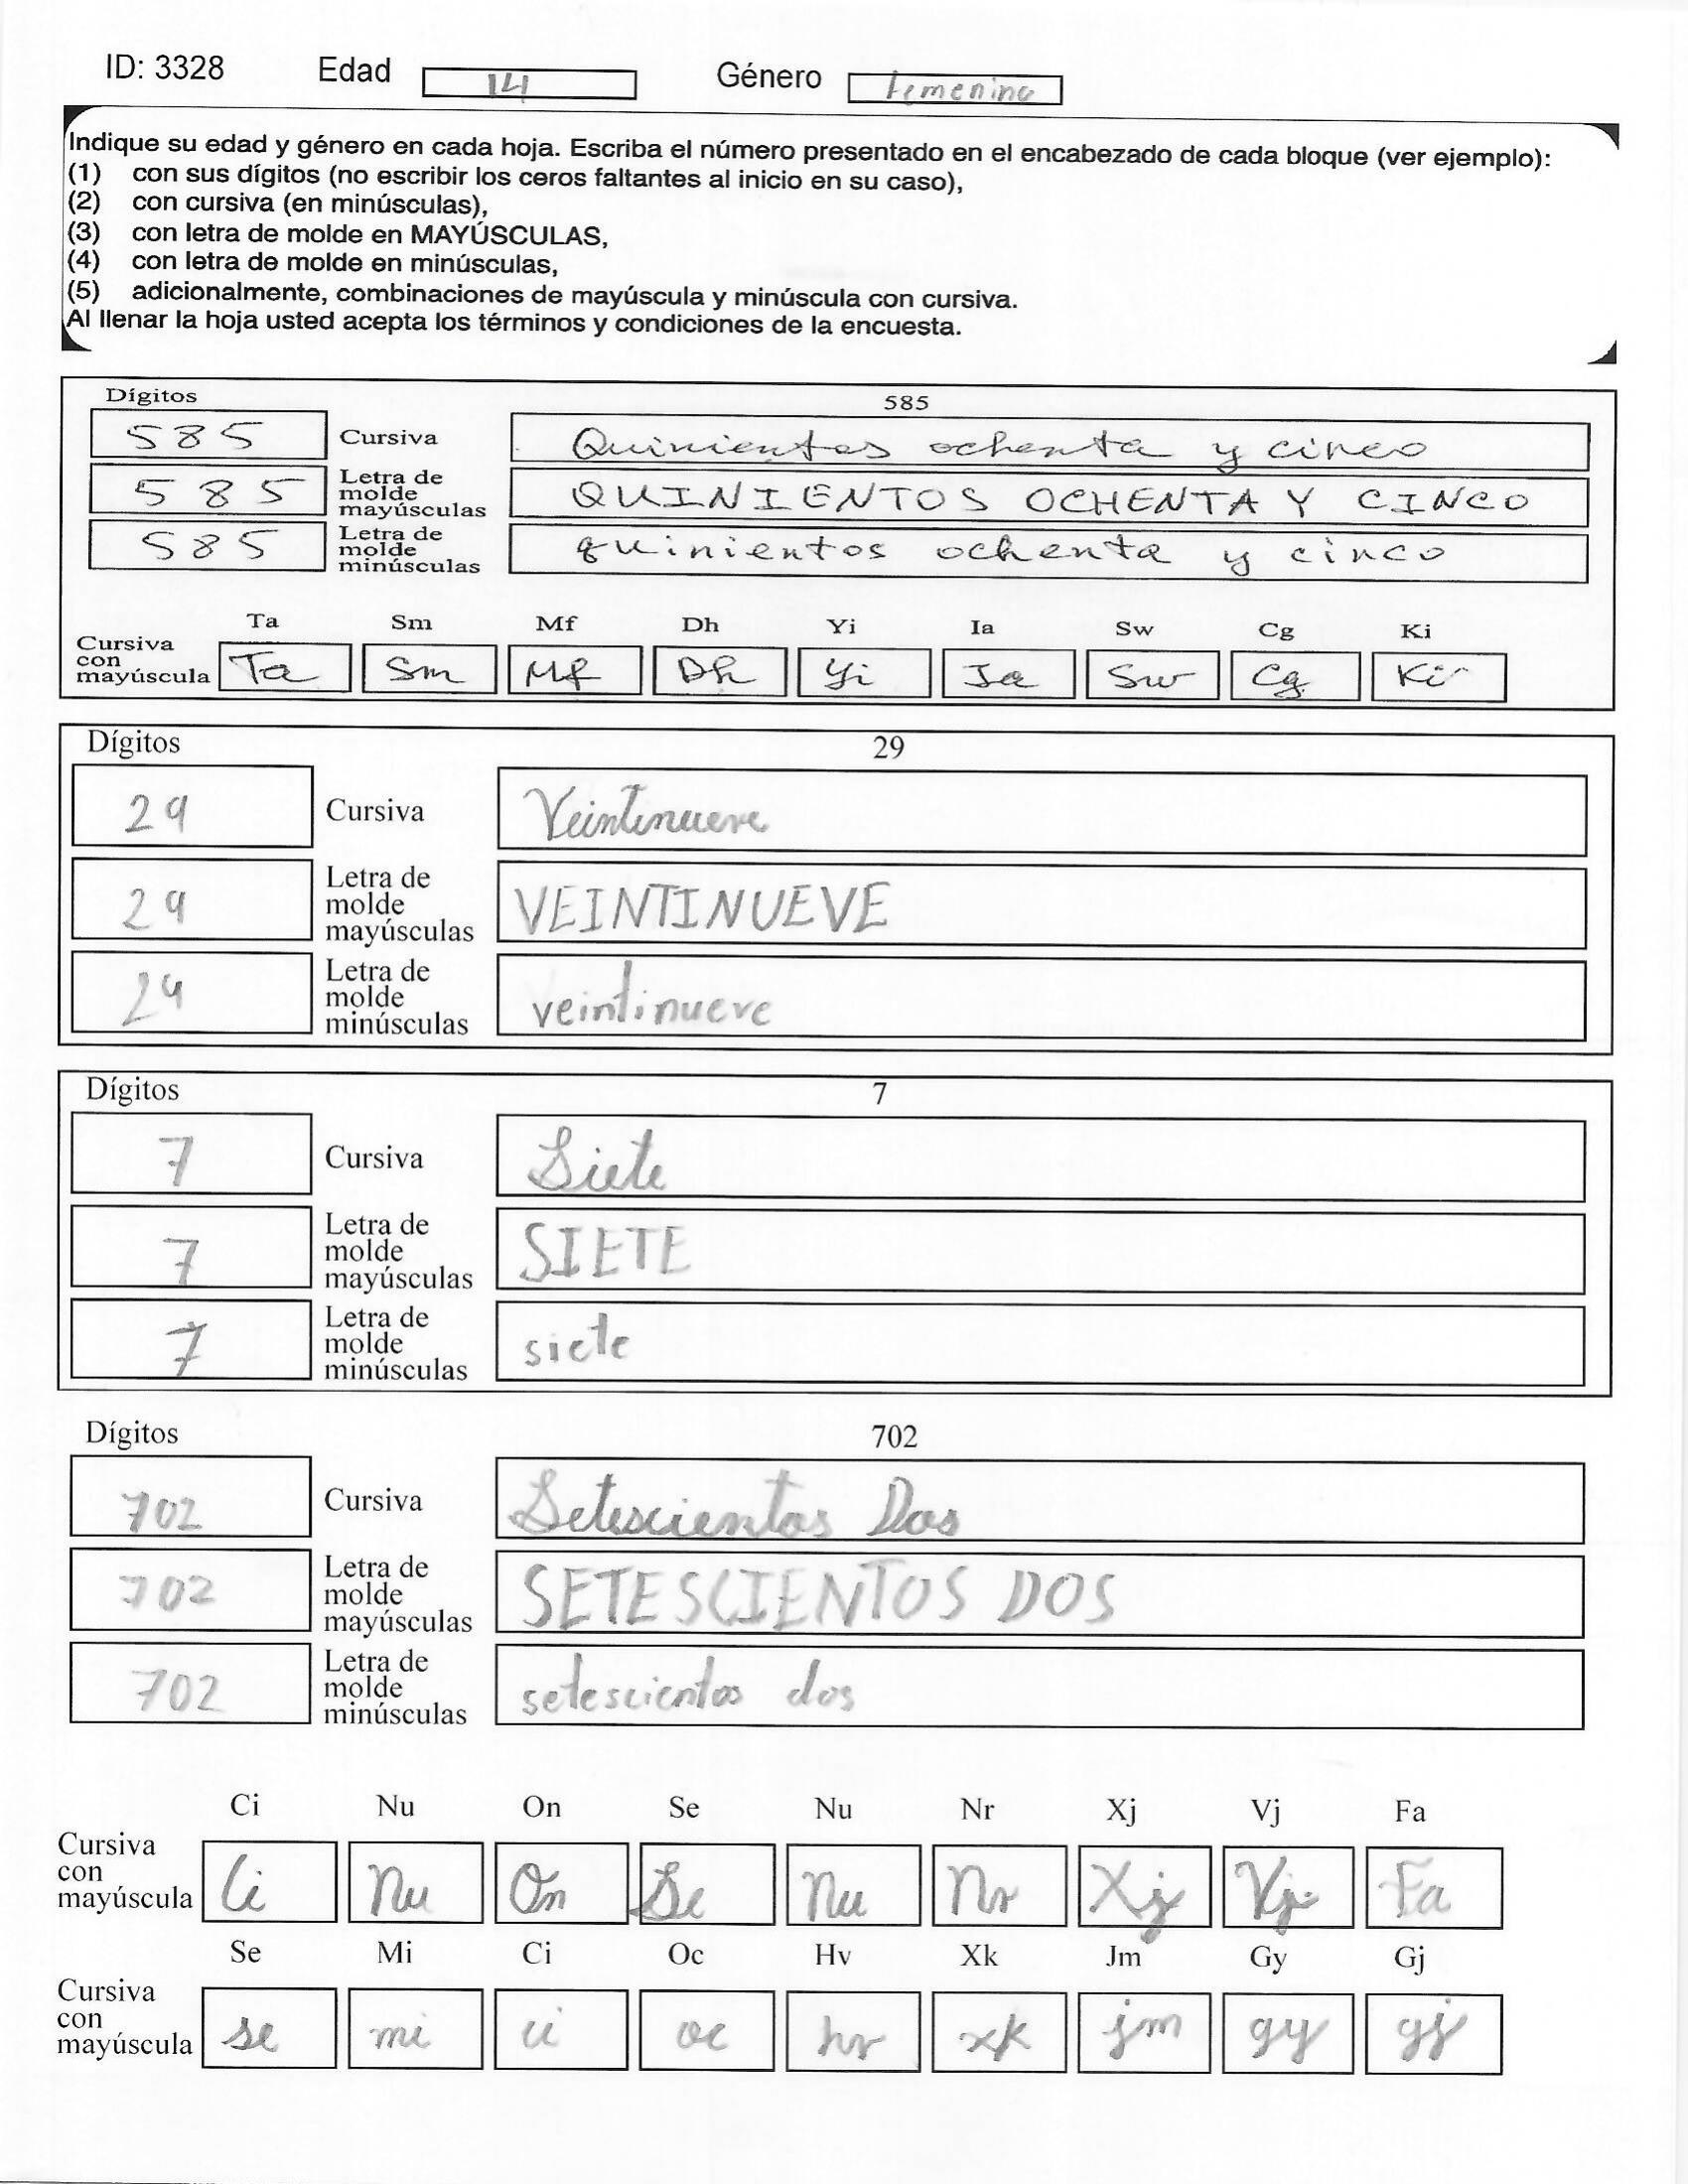 ID: 3328 Edad 14 Género femenino
Indique su edad y género en cada hoja. Escriba el número presentado en el encabezado de cada bloque (ver ejemplo):
(1) con sus dígitos (no escribir los ceros faltantes al inicio en su caso),
(2) con cursiva (en minúsculas),
(3) con letra de molde en MAYÚSCULAS,
(4) con letra de molde en minúsculas,
(5) adicionalmente, combinaciones de mayúscula y minúscula con cursiva.
Al llenar la hoja usted acepta los términos y condiciones de la encuesta.
Dígitos 585
585 Cursiva Quinientos ochenta y cinco
585 Letra de molde mayúsculas QUINIENTOS OCHENTA Y CINCO
585 Letra de molde minúsculas quinientos ochenta y cinco
Ta Sm Mf Dh Yi Ia Sw Cg Ki
Cursiva con mayúscula Ta Sm Mf Dh Yi Ia Sw Cg Ki
Dígitos 29
29 Cursiva Veintinueve
29 Letra de molde mayúsculas VEINTINUEVE
29 Letra de molde minúsculas veintinueve
Dígitos 7
7 Cursiva Siete
7 Letra de molde mayúsculas SIETE
7 Letra de molde minúsculas siete
Dígitos 702
702 Cursiva Setescientos Dos
702 Letra de molde mayúsculas SETESCIENTOS DOS
702 Letra de molde minúsculas setescientos dos
Ci Nu On Se Nu Nr Xj Vj Fa
Cursiva con mayúscula Ci Nu On Se Nu Nr Xj Vj Fa
Se Mi Ci Oc Hv Xk Jm Gy Gj
Cursiva con mayúscula se mi ci oc hv xk jm gy gj